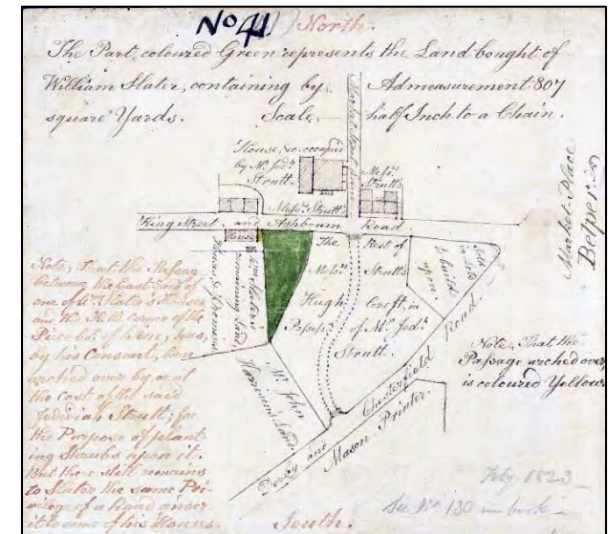 No 41
North.
The Part, coloured Green represents the Land bought of
William Slater, containing by Admeasurement 807
square Yards. Scale, half Inch to a Chain.
House, &c. occupied
by Mr. Jedh.
Strutt.
Market Place
Belper
Messrs.
Strutt's
Messrs. Strutt's
King Street and Ashbourn Road
House
Wm. Slater's
remaining Land
The
Messrs.
Hugh
Rest of
Strutt's
Croft in
Possessn. of Mr. Jedh.
Strutt.
Sold in Lots
to build
upon.
Mr. John
Harrison's Land
Derby and Chesterfield Road.
Mason Printer.
Note, That the Passage
between the East End of
one of Wm. Slater's Houses
and the N.W. corner of the
Piece bot. of him, has,
by his Consent, been
arched over by & at
the Cost of the said
Jedediah Strutt; for
the Purpose of plant-
ing Shrubs upon it.
But there still remains
to Slater the same Pri-
vilege of a Road under
it to some of his Houses.
Note, That the
Passage arched over,
is coloured Yellow.
Feby. 1823
See No. 130 in book
South.